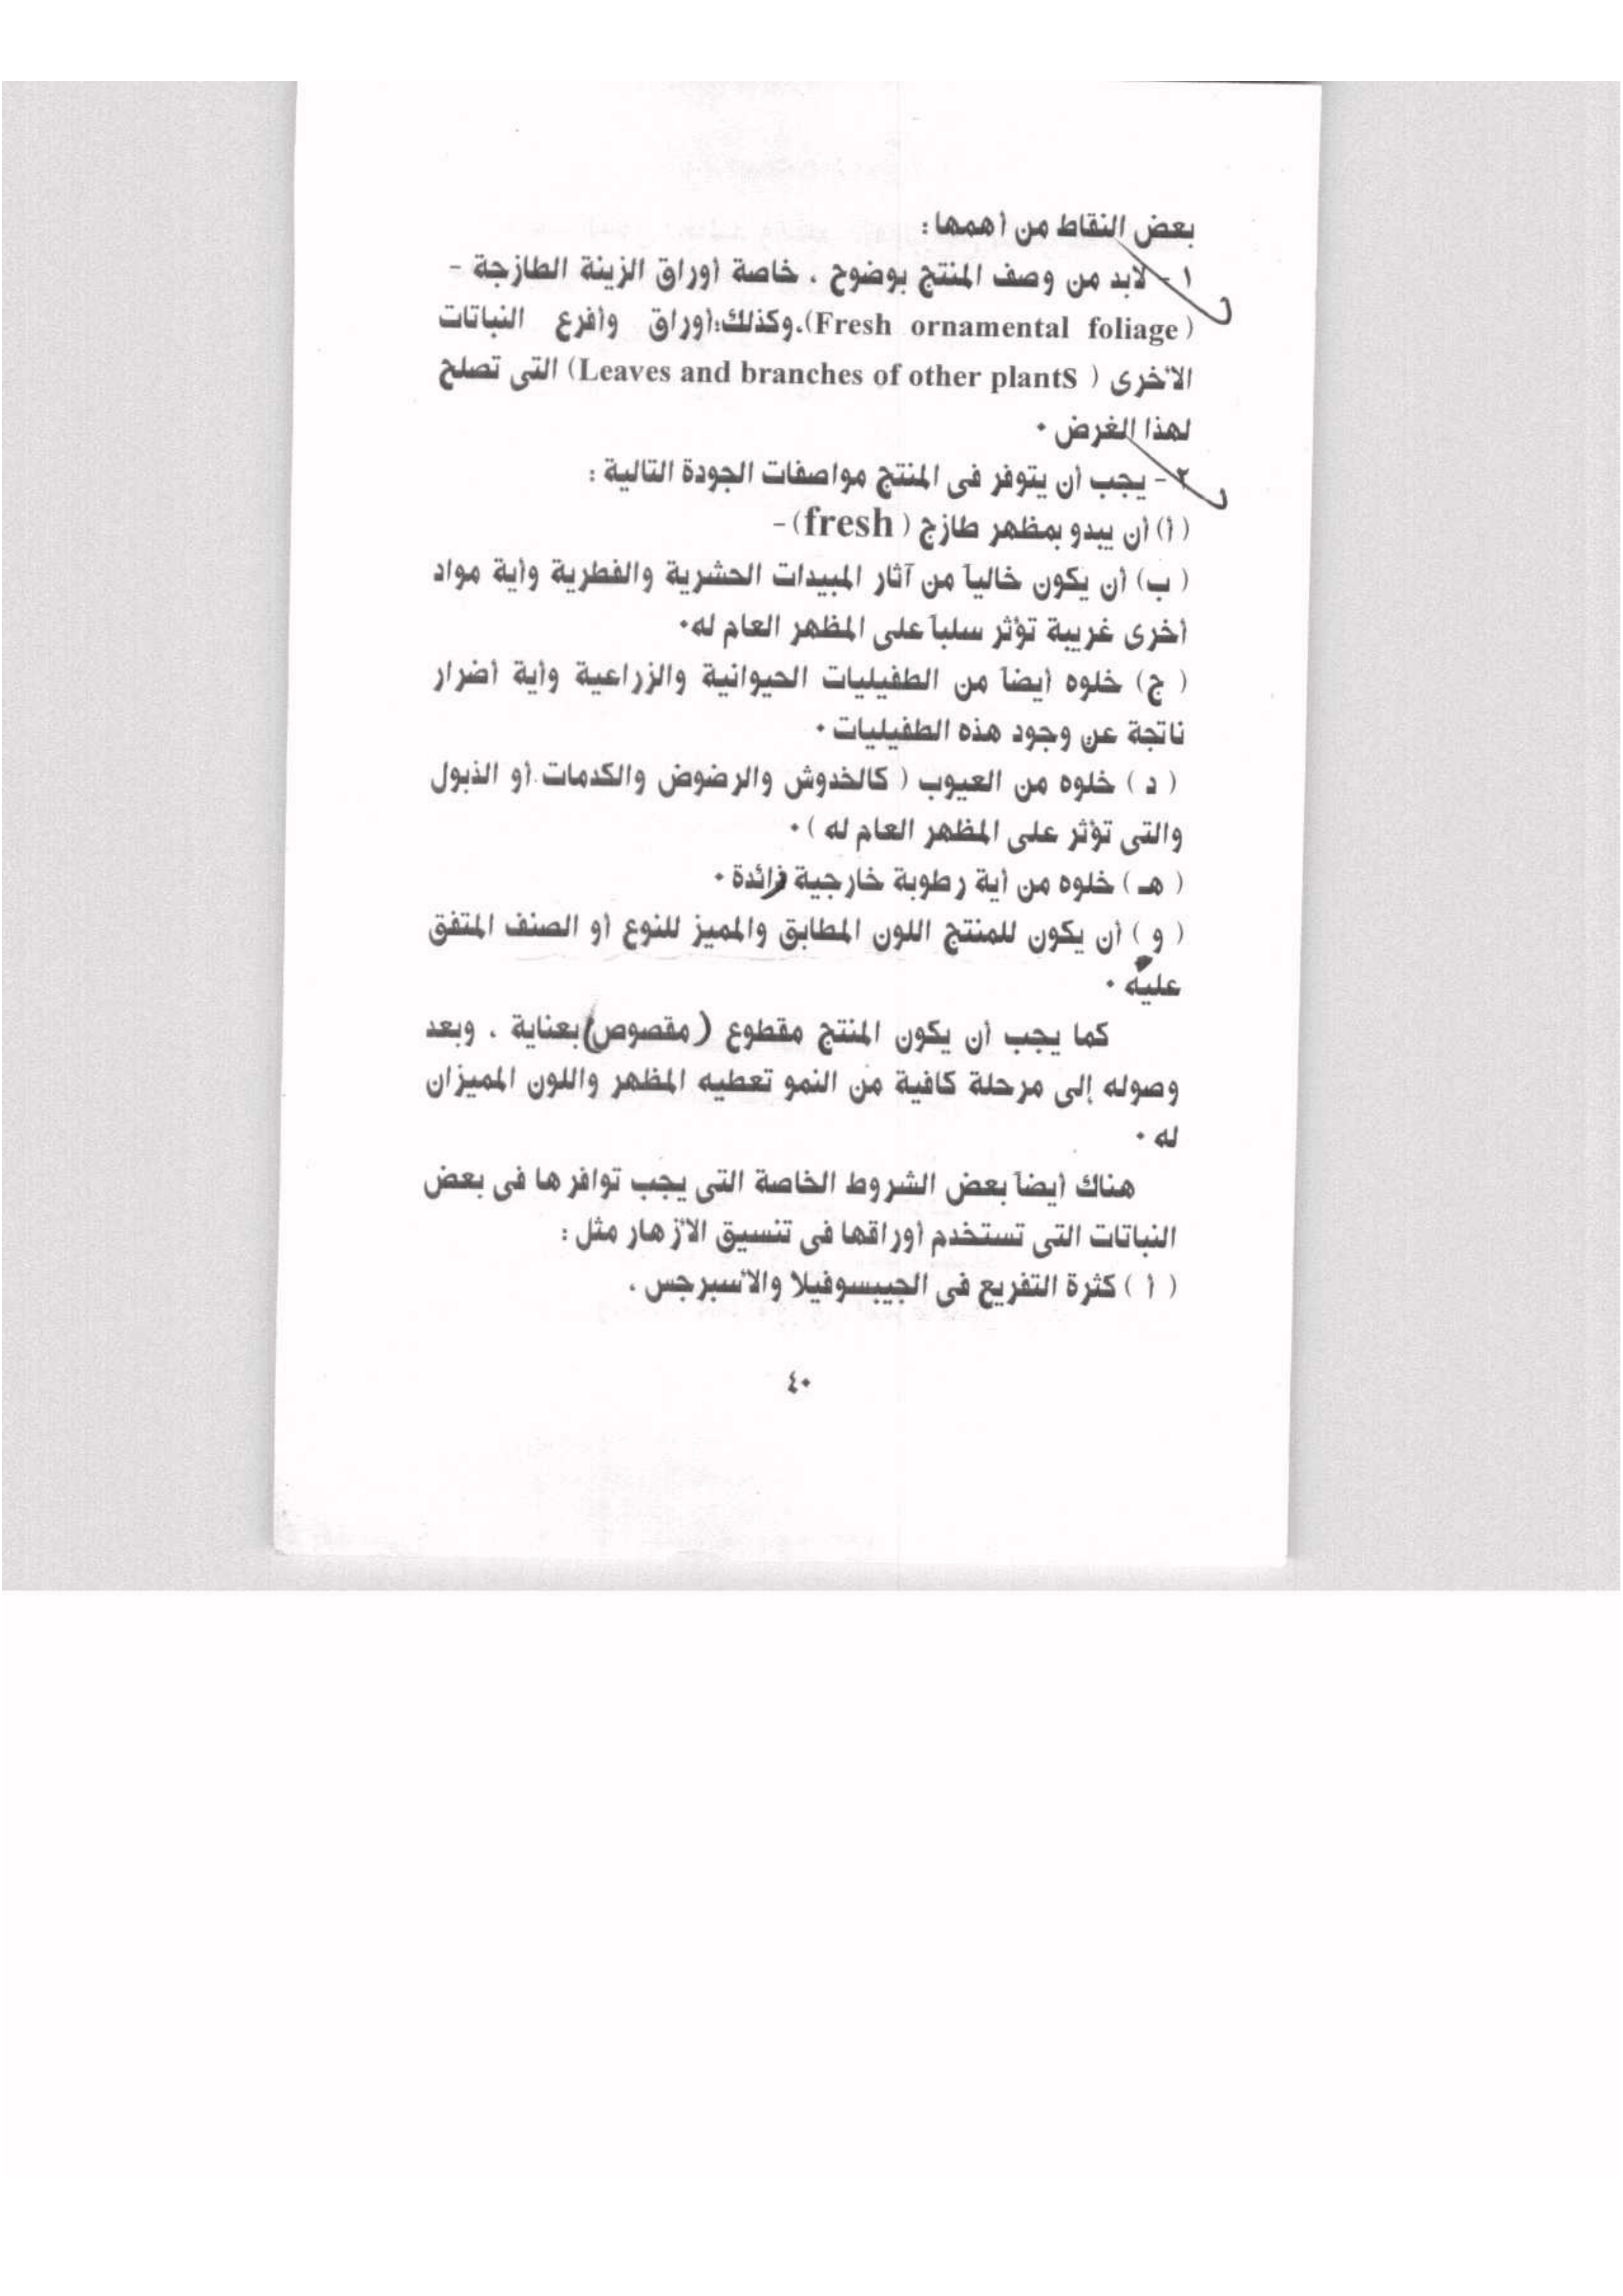 بعض النقاط من أهمها :
١ - لابد من وصف المنتج بوضوح ، خاصة أوراق الزينة الطازجة -
( Fresh ornamental foliage). وكذلك؛أوراق وأفرع النباتات
الأخرى ( Leaves and branches of other plantS) التى تصلح
لهذا الغرض ٠
٢ - يجب أن يتوفر فى المنتج مواصفات الجودة التالية :
( أ) أن يبدو بمظهر طازج ( fresh) -
( ب) أن يكون خالياً من آثار المبيدات الحشرية والفطرية وأية مواد
أخرى غريبة تؤثر سلباً على المظهر العام له٠
( ج) خلوه أيضاً من الطفيليات الحيوانية والزراعية وأية أضرار
ناتجة عن وجود هذه الطفيليات ٠
( د ) خلوه من العيوب ( كالخدوش والرضوض والكدمات أو الذبول
والتى تؤثر على المظهر العام له ) ٠
( هـ ) خلوه من أية رطوبة خارجية زائدة ٠
( و ) أن يكون للمنتج اللون المطابق والمميز للنوع أو الصنف المتفق
عليه ٠
كما يجب أن يكون المنتج مقطوع (مقصوص) بعناية ، وبعد
وصوله إلى مرحلة كافية من النمو تعطيه المظهر واللون المميزان
له ٠
هناك أيضاً بعض الشروط الخاصة التى يجب توافرها فى بعض
النباتات التى تستخدم أوراقها فى تنسيق الأزهار مثل :
( أ ) كثرة التفريع فى الجيبسوفيلا والأسبرجس .
٤٠